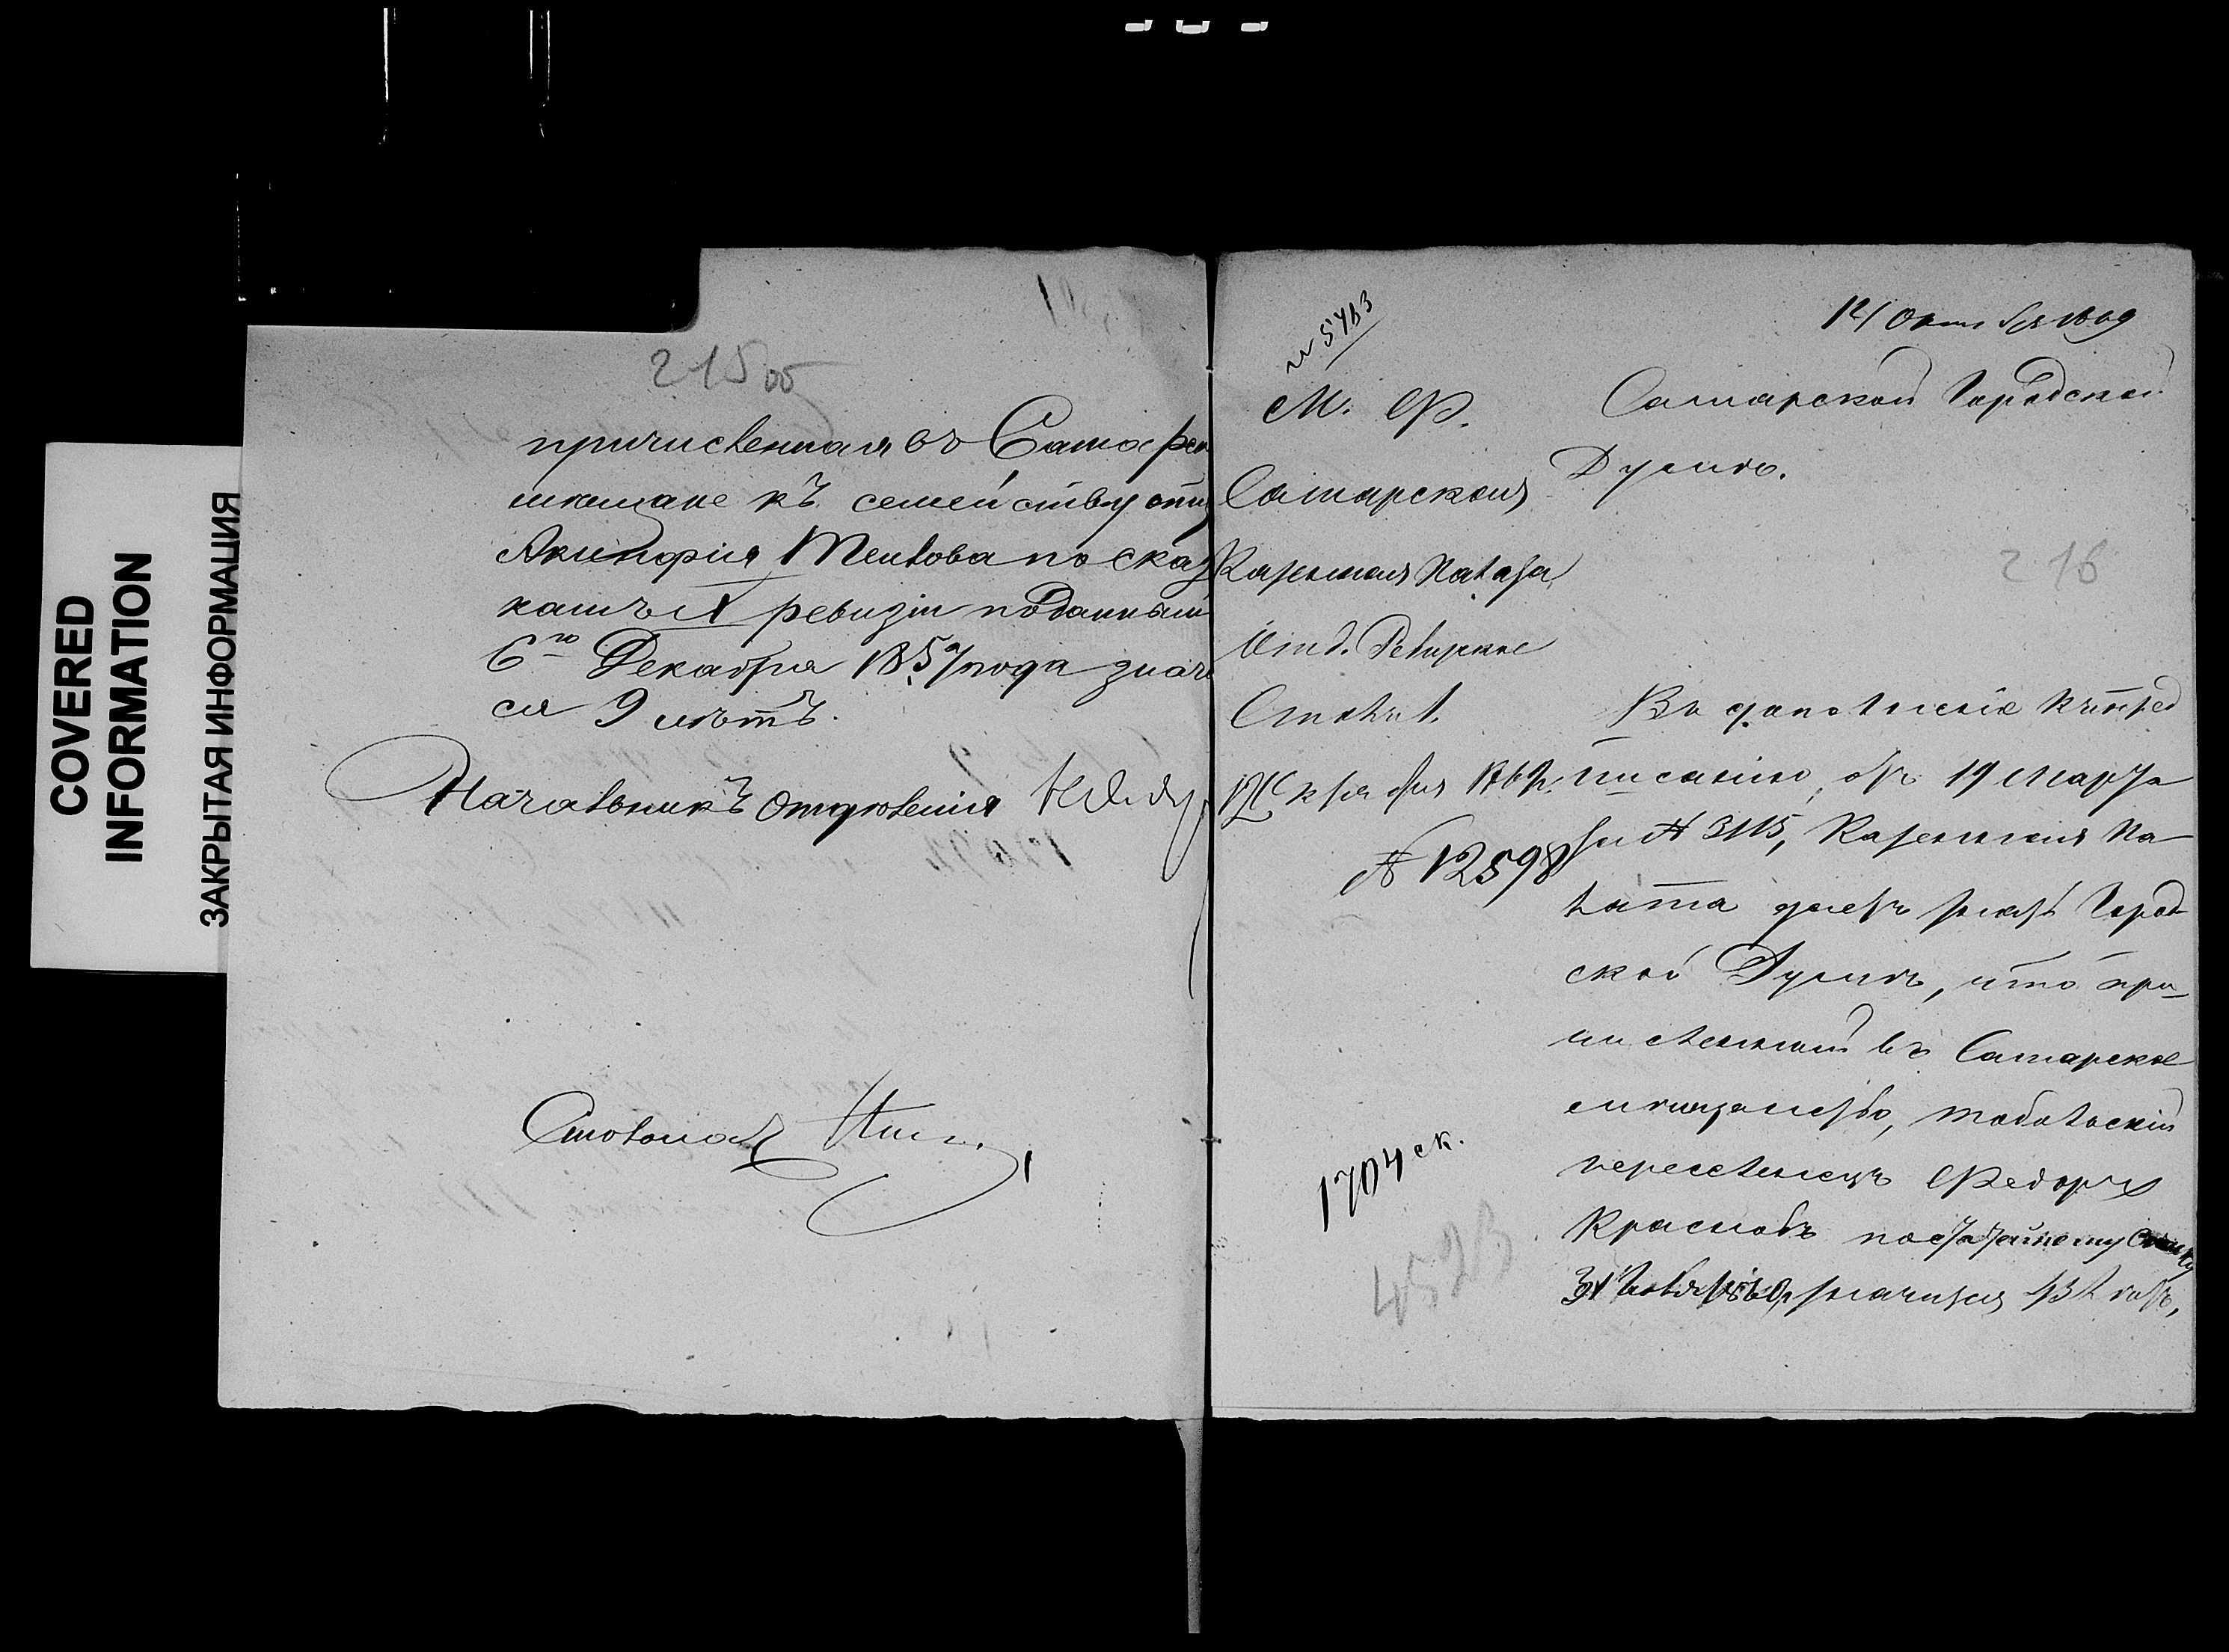 COVERED
INFORMATION
ЗАКРЫТАЯ ИНФОРМАЦИЯ
215 об
причисленная въ Самарск
мещане къ семейству отц
Акинфия Тентова по сказ
камъ X ревизіи поданным
6го Декабря 1857 года значи
ся 9 летъ.
Начальникъ отделенія
Столонач
№ 5463
М. Ф.
Самарская
Казенная Палата
Отд. Ревизское
Столъ 1.
Октября 1869.
№ 12598
1704 ск.
4523
12 Октября 1869
Самарской Городской
Думѣ.
216
Въ дополненіе къ пред
писанію, отъ 19 Марта
за № 3115, Казенная Па-
лата даетъ знать Город
ской Думѣ, что при-
численный въ Самарское
мещанство, тобольскій
переселенецъ Федоръ
Красновъ по статейному списку
значился 43 л